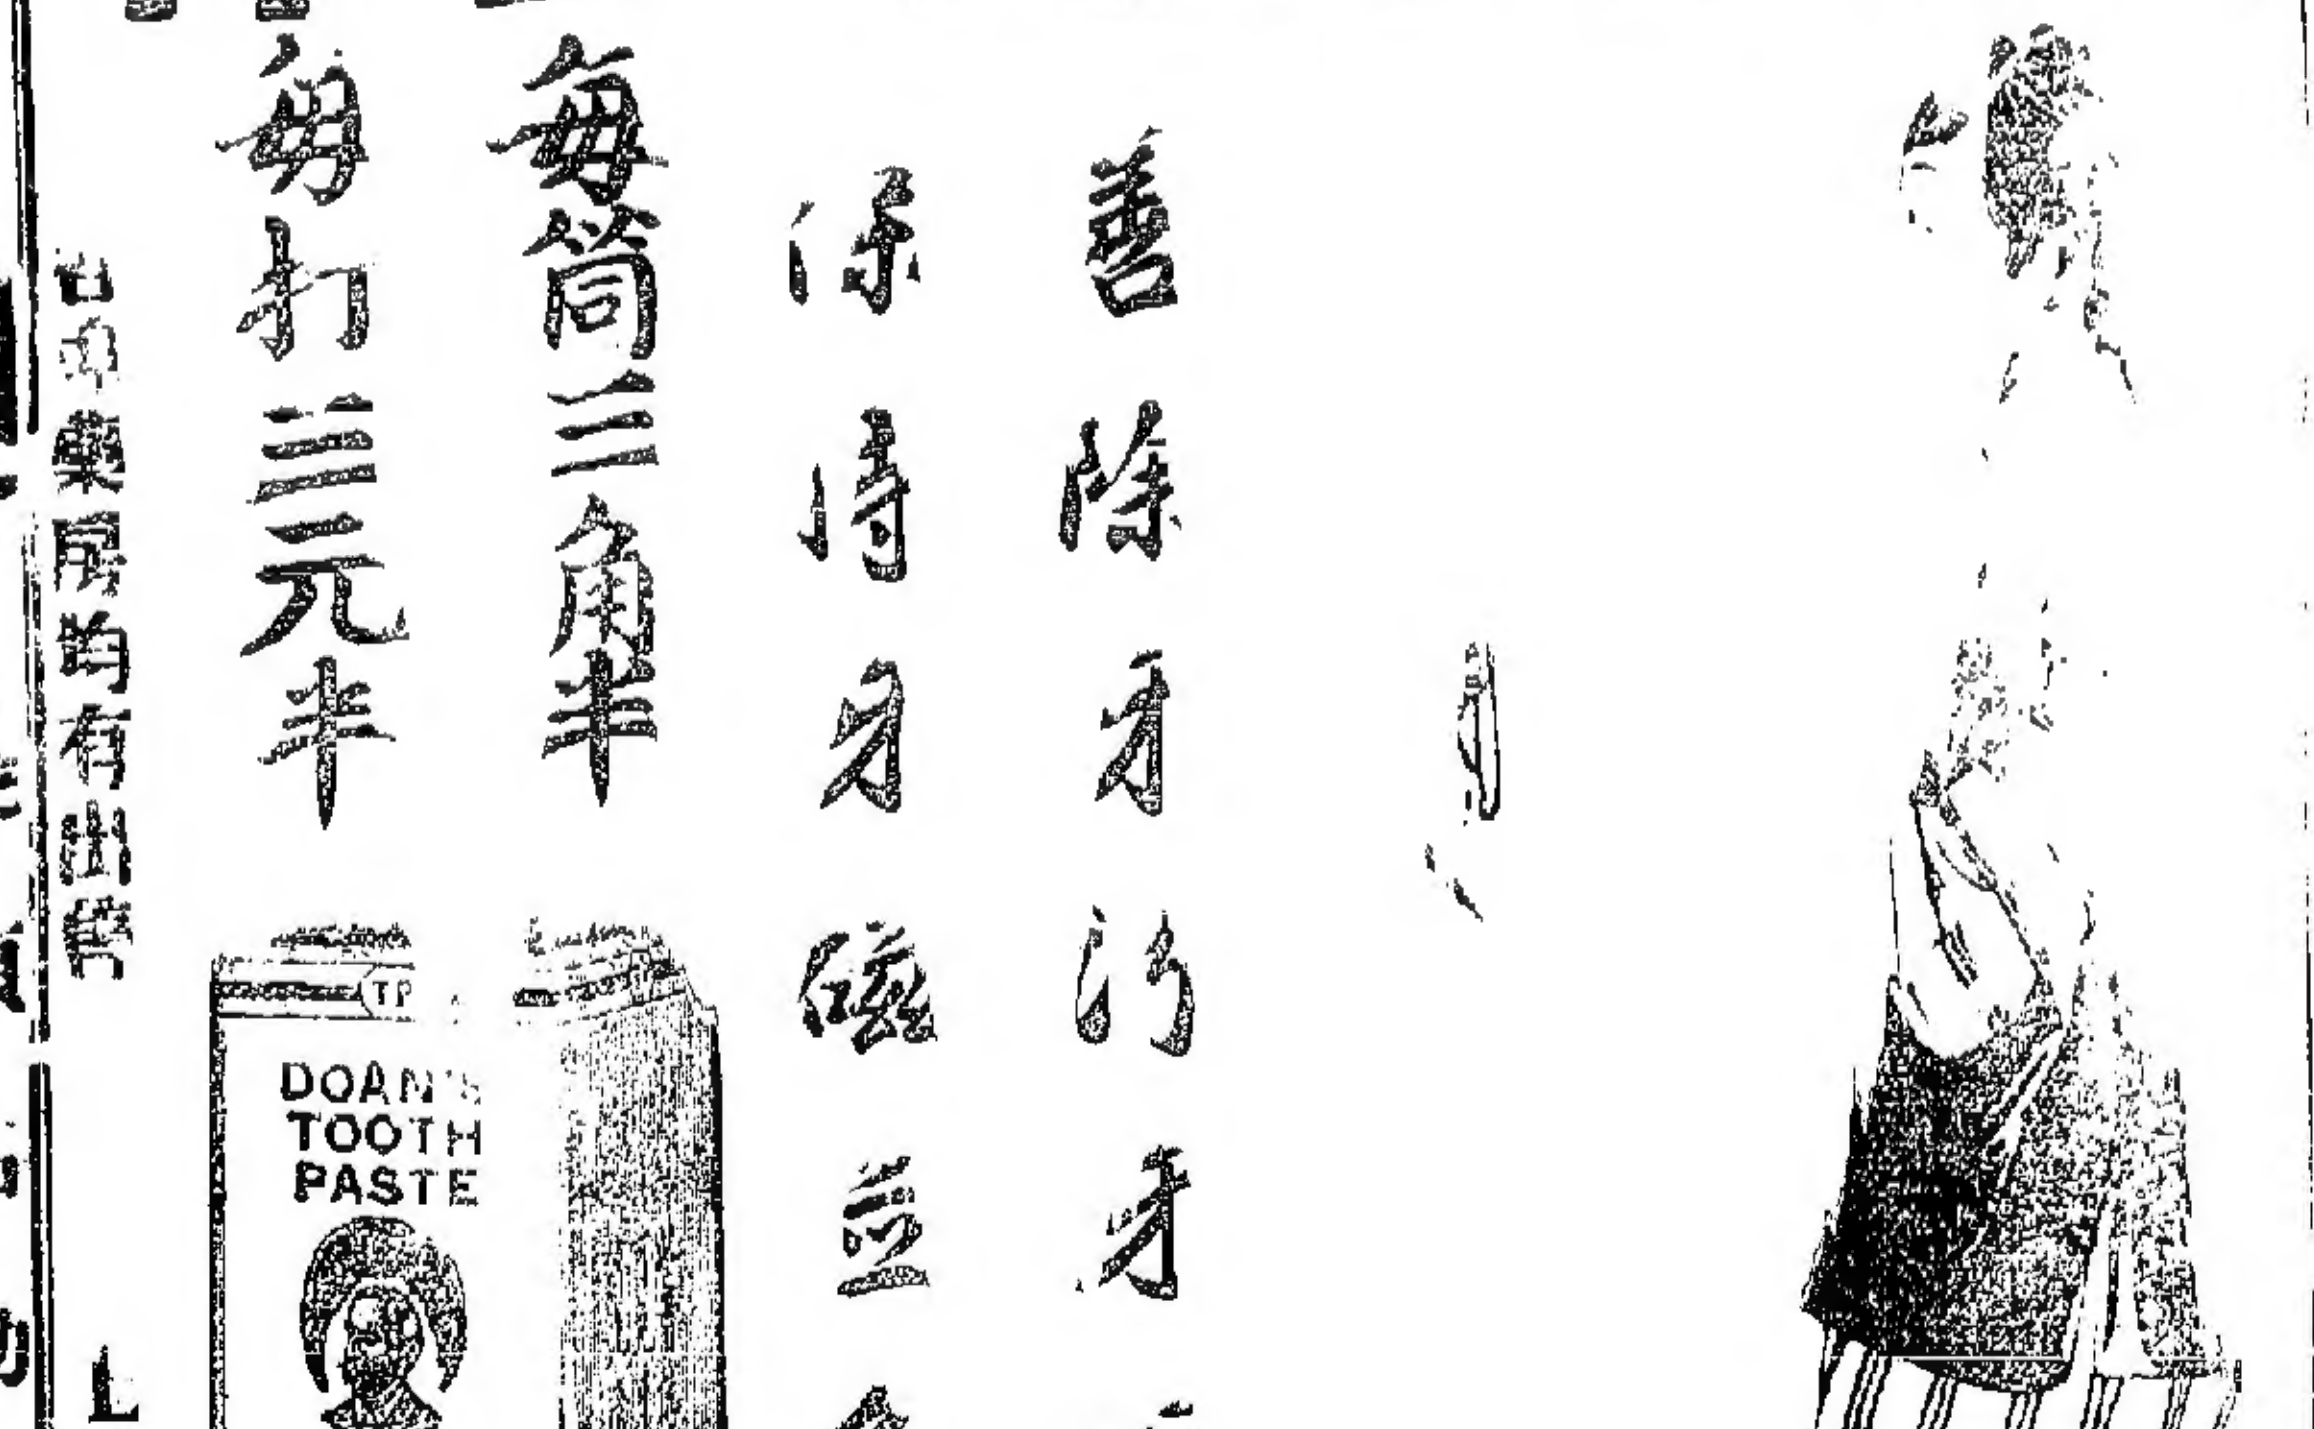 善除牙污牙
保持牙磁並
每筒三角半
每打三元半
藥房均有出
DOAN'S
TOOTH
PASTE